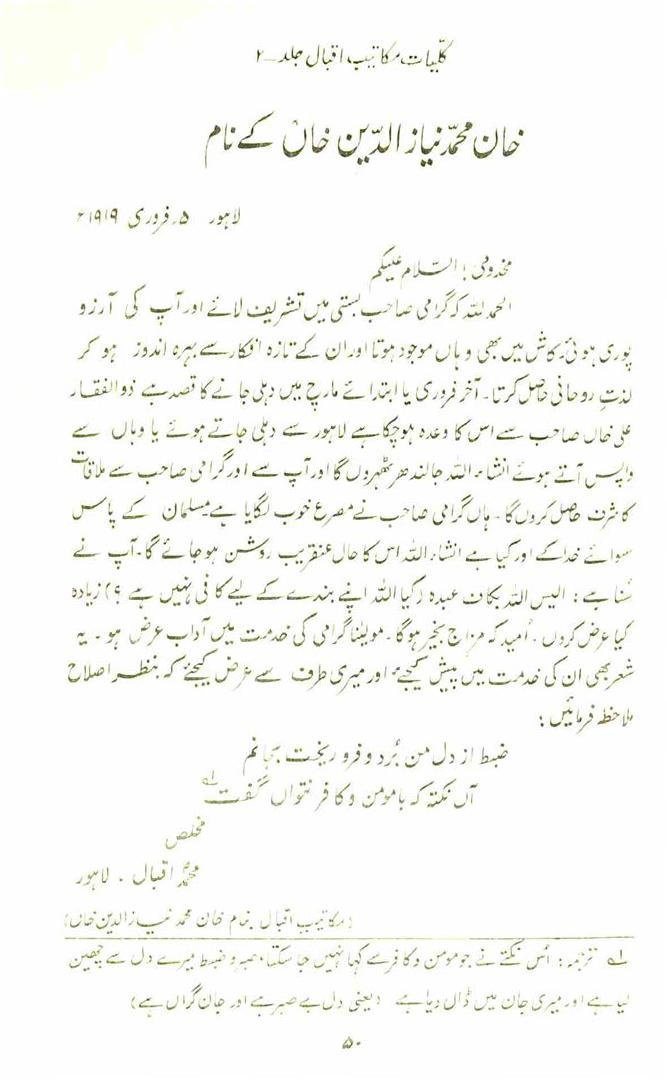 کلّیات مکاتیب اقبال جلد ۔۲
خان محمّد نیاز الدّین خاںؒ کے نام
لاہور ۵ فروری ۱۹۱۹ء
مخدومی! السّلام علیکم
الحمد للہ کہ گرامی صاحب بستی میں تشریف لائے اور آپ کی آرزو
پوری ہوئی۔ کاش میں بھی وہاں موجود ہوتا اور ان کے تازہ افکار سے بہرہ اندوز ہو کر
لذتِ روحانی حاصل کرتا۔ آخر فروری یا ابتدائے مارچ میں دہلی جانے کا قصد ہے ذوالفقار
علی خاں صاحب سے اس کا وعدہ ہو چکا ہے لاہور سے دہلی جاتے ہوئے یا وہاں سے
واپس آتے ہوئے انشاء اللہ جالندھر ٹھہروں گا اور آپ سے اور گرامی صاحب سے ملاقات
کا شرف حاصل کروں گا۔ ہاں گرامی صاحب نے مصرع خوب لگایا ہے مسلمان کے پاس
سوائے خدا کے اور کیا ہے انشاء اللہ اس کا حال عنقریب روشن ہو جائے گا۔ آپ نے
سُنا ہے: الیس اللہ بکاف عبدہ (کیا اللہ اپنے بندے کے لیے کافی نہیں ہے؟) زیادہ
کیا عرض کروں۔ اُمید کہ مزاج بخیر ہوگا۔ مولینا گرامی کی خدمت میں آداب عرض ہو۔ یہ
شعر بھی ان کی خدمت میں پیش کیجیے اور میری طرف سے عرض کیجئے کہ بنظرِ اصلاح
ملاحظہ فرمائیں:
ضبط از دل من بُرد و فرو ریخت بجانم
آں نکتہ کہ با مومن و کافر نتواں گفت لہ
مخلص
محمّد اقبال ۔ لاہور
(مکاتیب اقبال بنام خان محمد نیاز الدین خاں)
لہ ترجمہ: اُس نکتے نے جو مومن و کافر سے کہا نہیں جا سکتا، صبر و ضبط میرے دل سے چھین
لیا ہے اور میری جان میں ڈال دیا ہے (یعنی دل بے صبر ہے اور جان گراں ہے)
۵۰